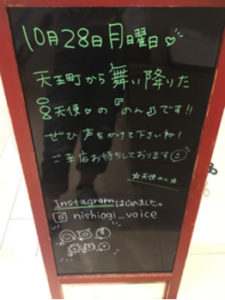 10月28日月曜日♡
天王町から舞い降りた
天使♡の『のん』です!!
ぜひ声をかけて下さいね!
ご来店お待ちしております☺
☆天使のん☆
Instagramはじめました。
nishiogi_voice